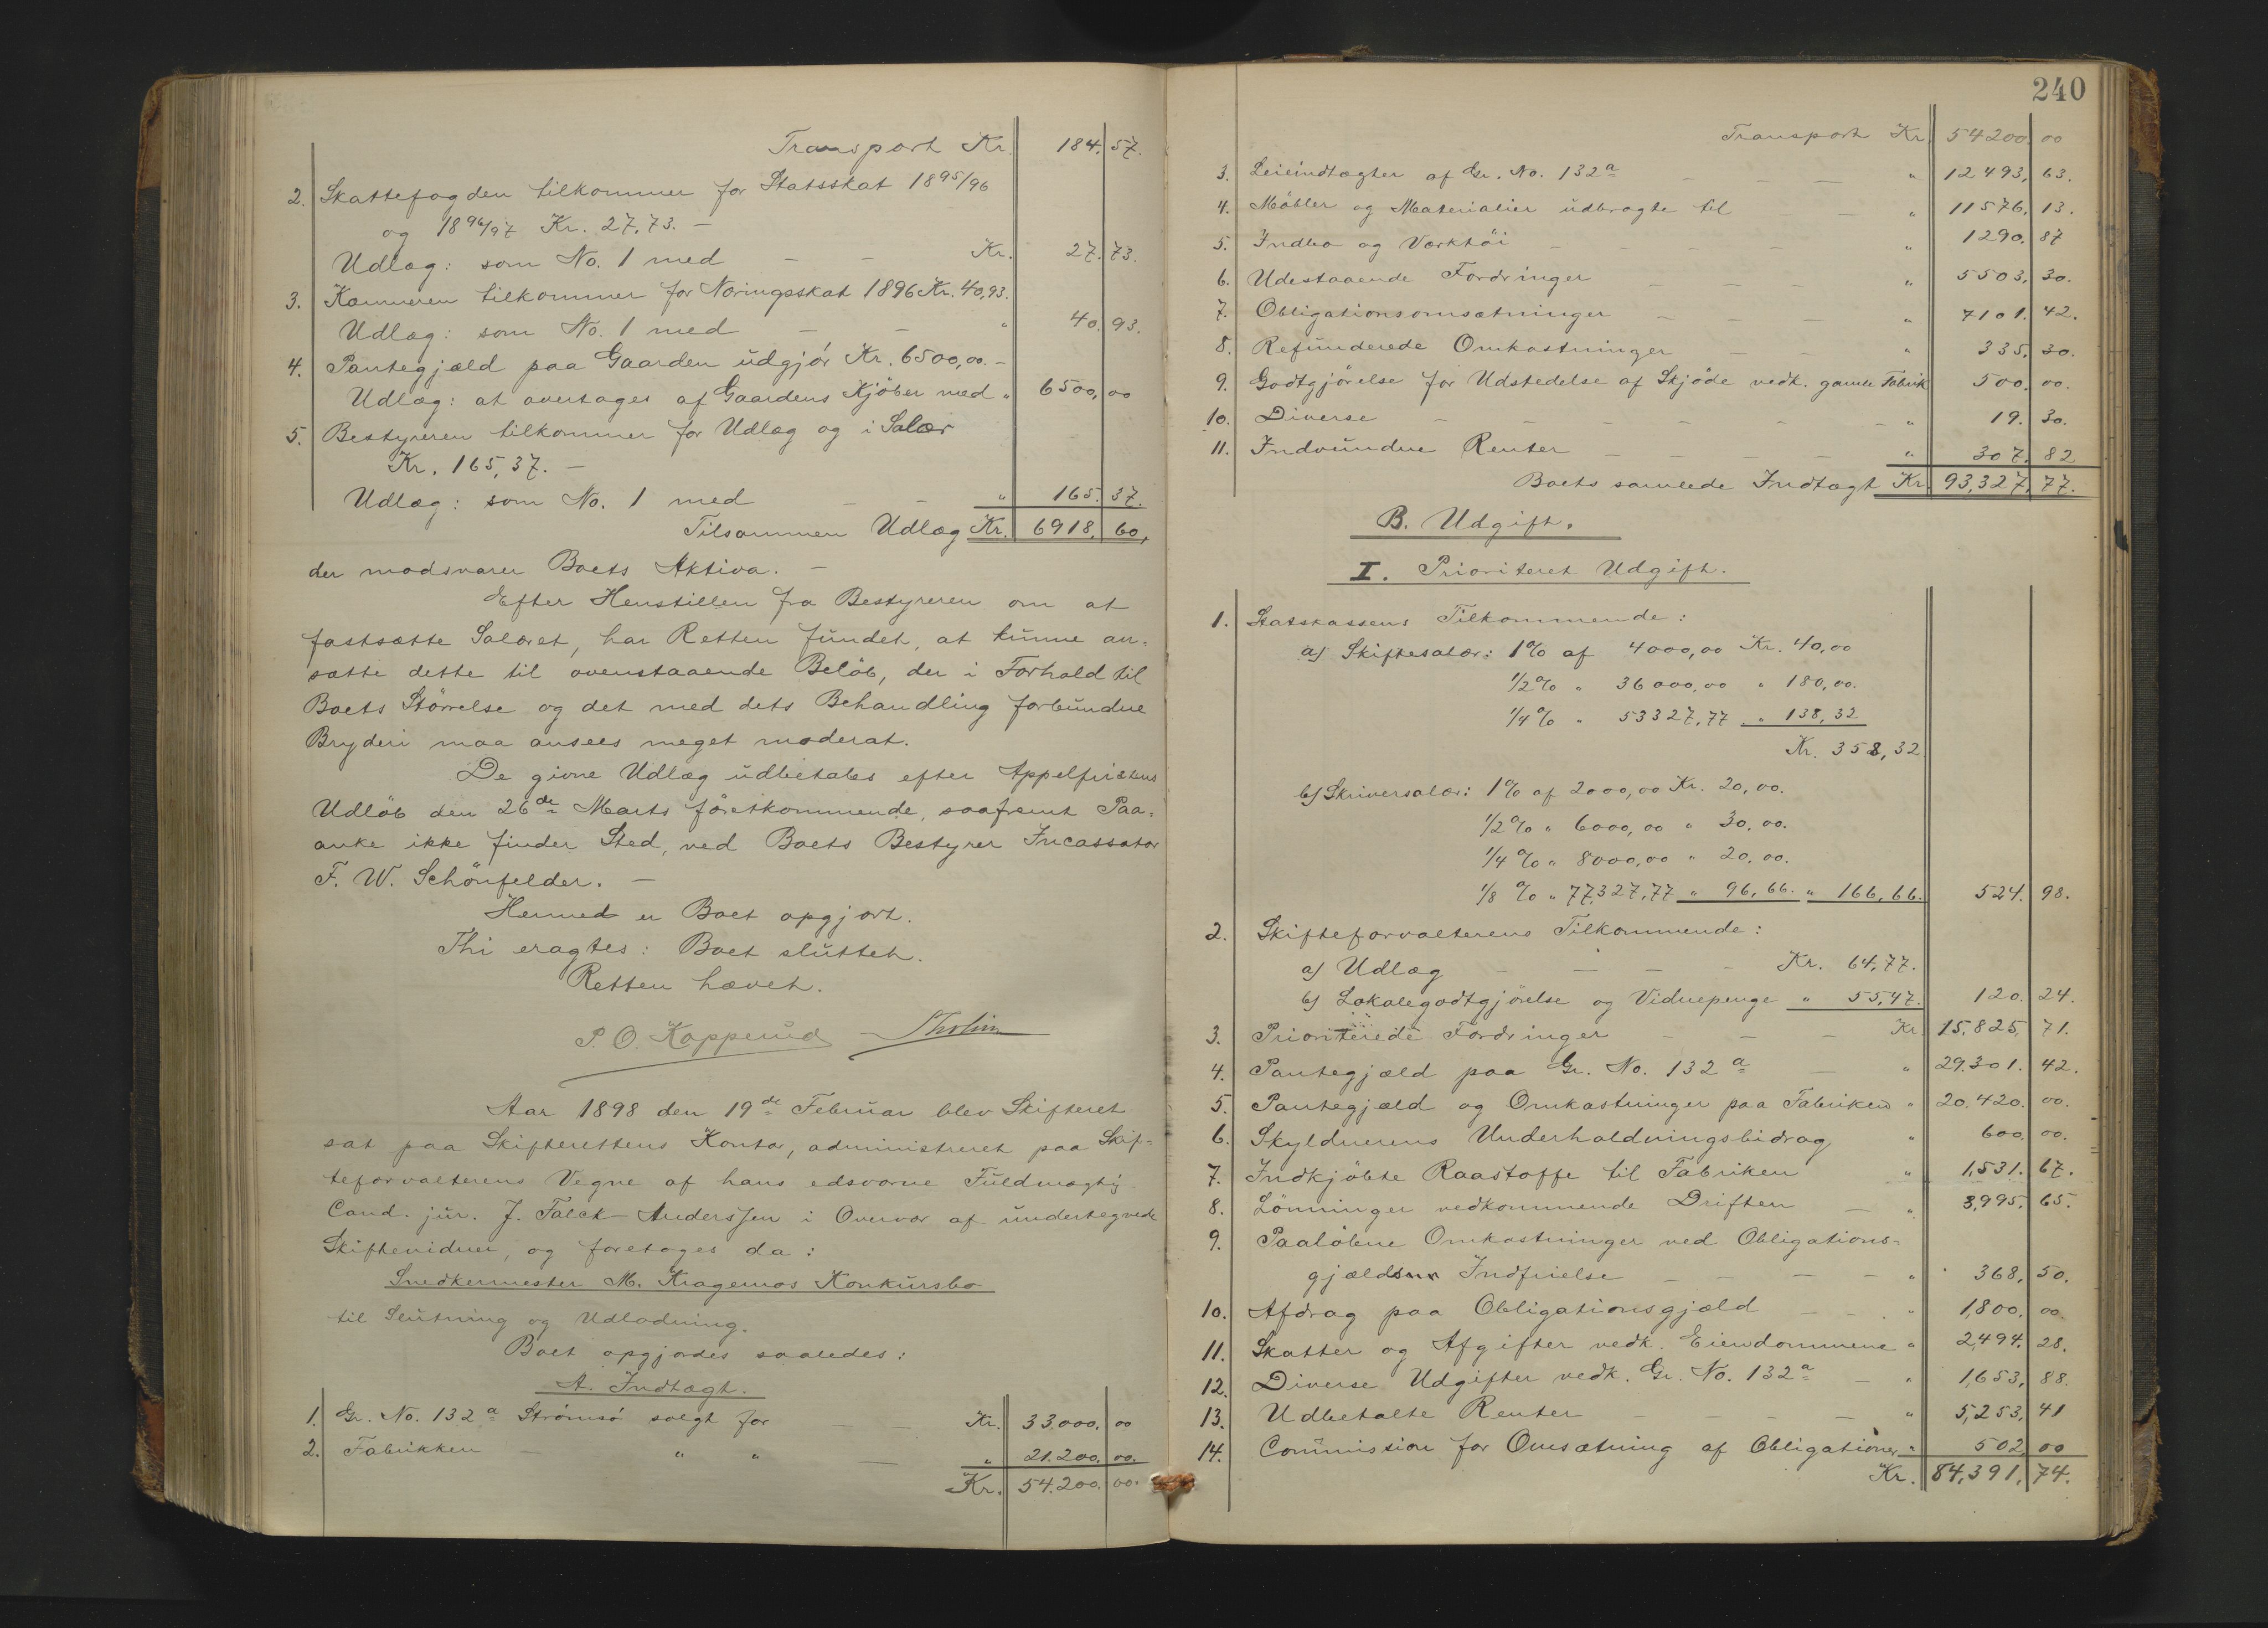 Transport Kr. 184. 57.
2. Skattefogden tilkommer for Statsskat 1895/96
og 1896/97 Kr. 27,73. –
Udlæg: som No. 1 med – – Kr. 27. 73.
3. Kæmneren tilkommer for Næringsskat 1896 Kr. 40,93.
Udlæg: som No. 1 med – – " 40. 93.
4. Pantegjæld paa Gaarden udgjör Kr. 6500,00. –
Udlæg: at overtages af Gaardens Kjöber med " 6500, 00
5. Bestyreren tilkommer for Udlæg og i Salær
Kr. 165,37. –
Udlæg: som No. 1 med – – " 165. 37.
Tilsammen Udlæg Kr. 6918. 60.
der modsvarer Boets Aktiva. –
Efter Henstillen fra Bestyreren om at
fastsætte Salæret, har Retten fundet, at kunne an-
sætte dette til ovenstaaende Belöb, der i Forhold til
Boets Störrelse og det med dets Behandling forbundne
Bryderi maa ansees meget moderat.
De givne Udlæg udbetales efter Appelfristens
Udlöb den 26de Marts förstkommende, saafremt Paa-
anke ikke finder Sted, ved Boets Bestyrer Incassator
F. W. Schönfelder. –
Hermed er Boet opgjort.
Thi eragtes: Boet sluttet.
Retten hævet.
P. O. Kopperud
Aar 1898 den 19de Februar blev Skifteret
sat paa Skifterettens Kontor, administreret paa Skif-
teforvalterens Vegne af hans edsvorne Fuldmægtig
Cand. jur. J. Falck-Anderssen i Overvær af undertegnede
Skiftevidner, og foretoges da:
Snedkermester M. Kragemos Konkursbo
til Slutning og Udlodning.
Boet opgjordes saaledes:
A. Indtægt.
1. Gr. No. 132a Strömsö solgt for — Kr. 33.000. 00
2. Fabrikken – " " — " 21.200. 00.
Kr. 54.200. 00.
240
Transport Kr. 54200. 00
3. Leieindtægter af Gr. No. 132a – – — " 12493. 63.
4. Möbler og Materialier udbragte til – – " 11576. 13.
5. Indbo og Værktöi – – – " 1290. 87
6. Udestaaende Fordringer – – – " 5503. 30.
7. Obligationsomsætninger – – – " 7101. 42.
8. Refunderede Omkostninger – – " 335. 30.
9. Godtgjörelse for Udstedelse af Skjöde vedk. gamle Fabrik 500. 00.
10. Diverse – – – – – – " 19. 30.
11. Indvundne Renter – – – – " 307. 82
Boets samlede Indtægt Kr. 93,327. 77.
B. Udgift.
I. Prioriteret Udgift.
1. Statskassens Tilkommende:
a) Skiftesalær: 1% af 4000,00 Kr. 40,00
1/2% " 36000,00 " 180,00.
1/4% " 53327,77 " 138,32
Kr. 358,32
b) Skriversalær: 1% af 2000,00 Kr. 20,00.
1/2% " 6000,00 " 30,00.
1/4% " 8000,00 " 20,00.
1/8% " 77,327,77 " 96,66. " 166,66. 524. 98.
2. Skifteforvalterens Tilkommende:
a) Udlæg – – – – Kr. 64,77.
b) Lokalegodtgjörelse og Vidnepenge " 55,47. 120. 24.
3. Prioriterede Fordringer – – – Kr 15,825. 71.
4. Pantegjæld paa Gr. No. 132a — " 29.301. 42.
5. Pantegjæld og Omkostninger paa Fabriken " 20.420. 00.
6. Skyldnerens Underholdningsbidrag " 600. 00.
7. Indkjöbte Raastoffe til Fabriken " 1,531. 67.
8. Lönninger vedkommende Driften — " 3,995. 65.
9. Paalöbne Omkostninger ved Obligations-
gjældens Indfrielse – – – – " 368. 50.
10. Afdrag paa Obligationsgjæld – – " 1,800. 00.
11. Skatter og Afgifter vedk. Eiendommene " 2,494. 28.
12. Diverse Udgifter vedk. Gr. No. 132a – " 1,653. 88.
13. Udbetalte Renter – – – – " 5,253. 41
14. Commission for Omsætning af Obligationer " 502 00
Kr. 84,391. 74.